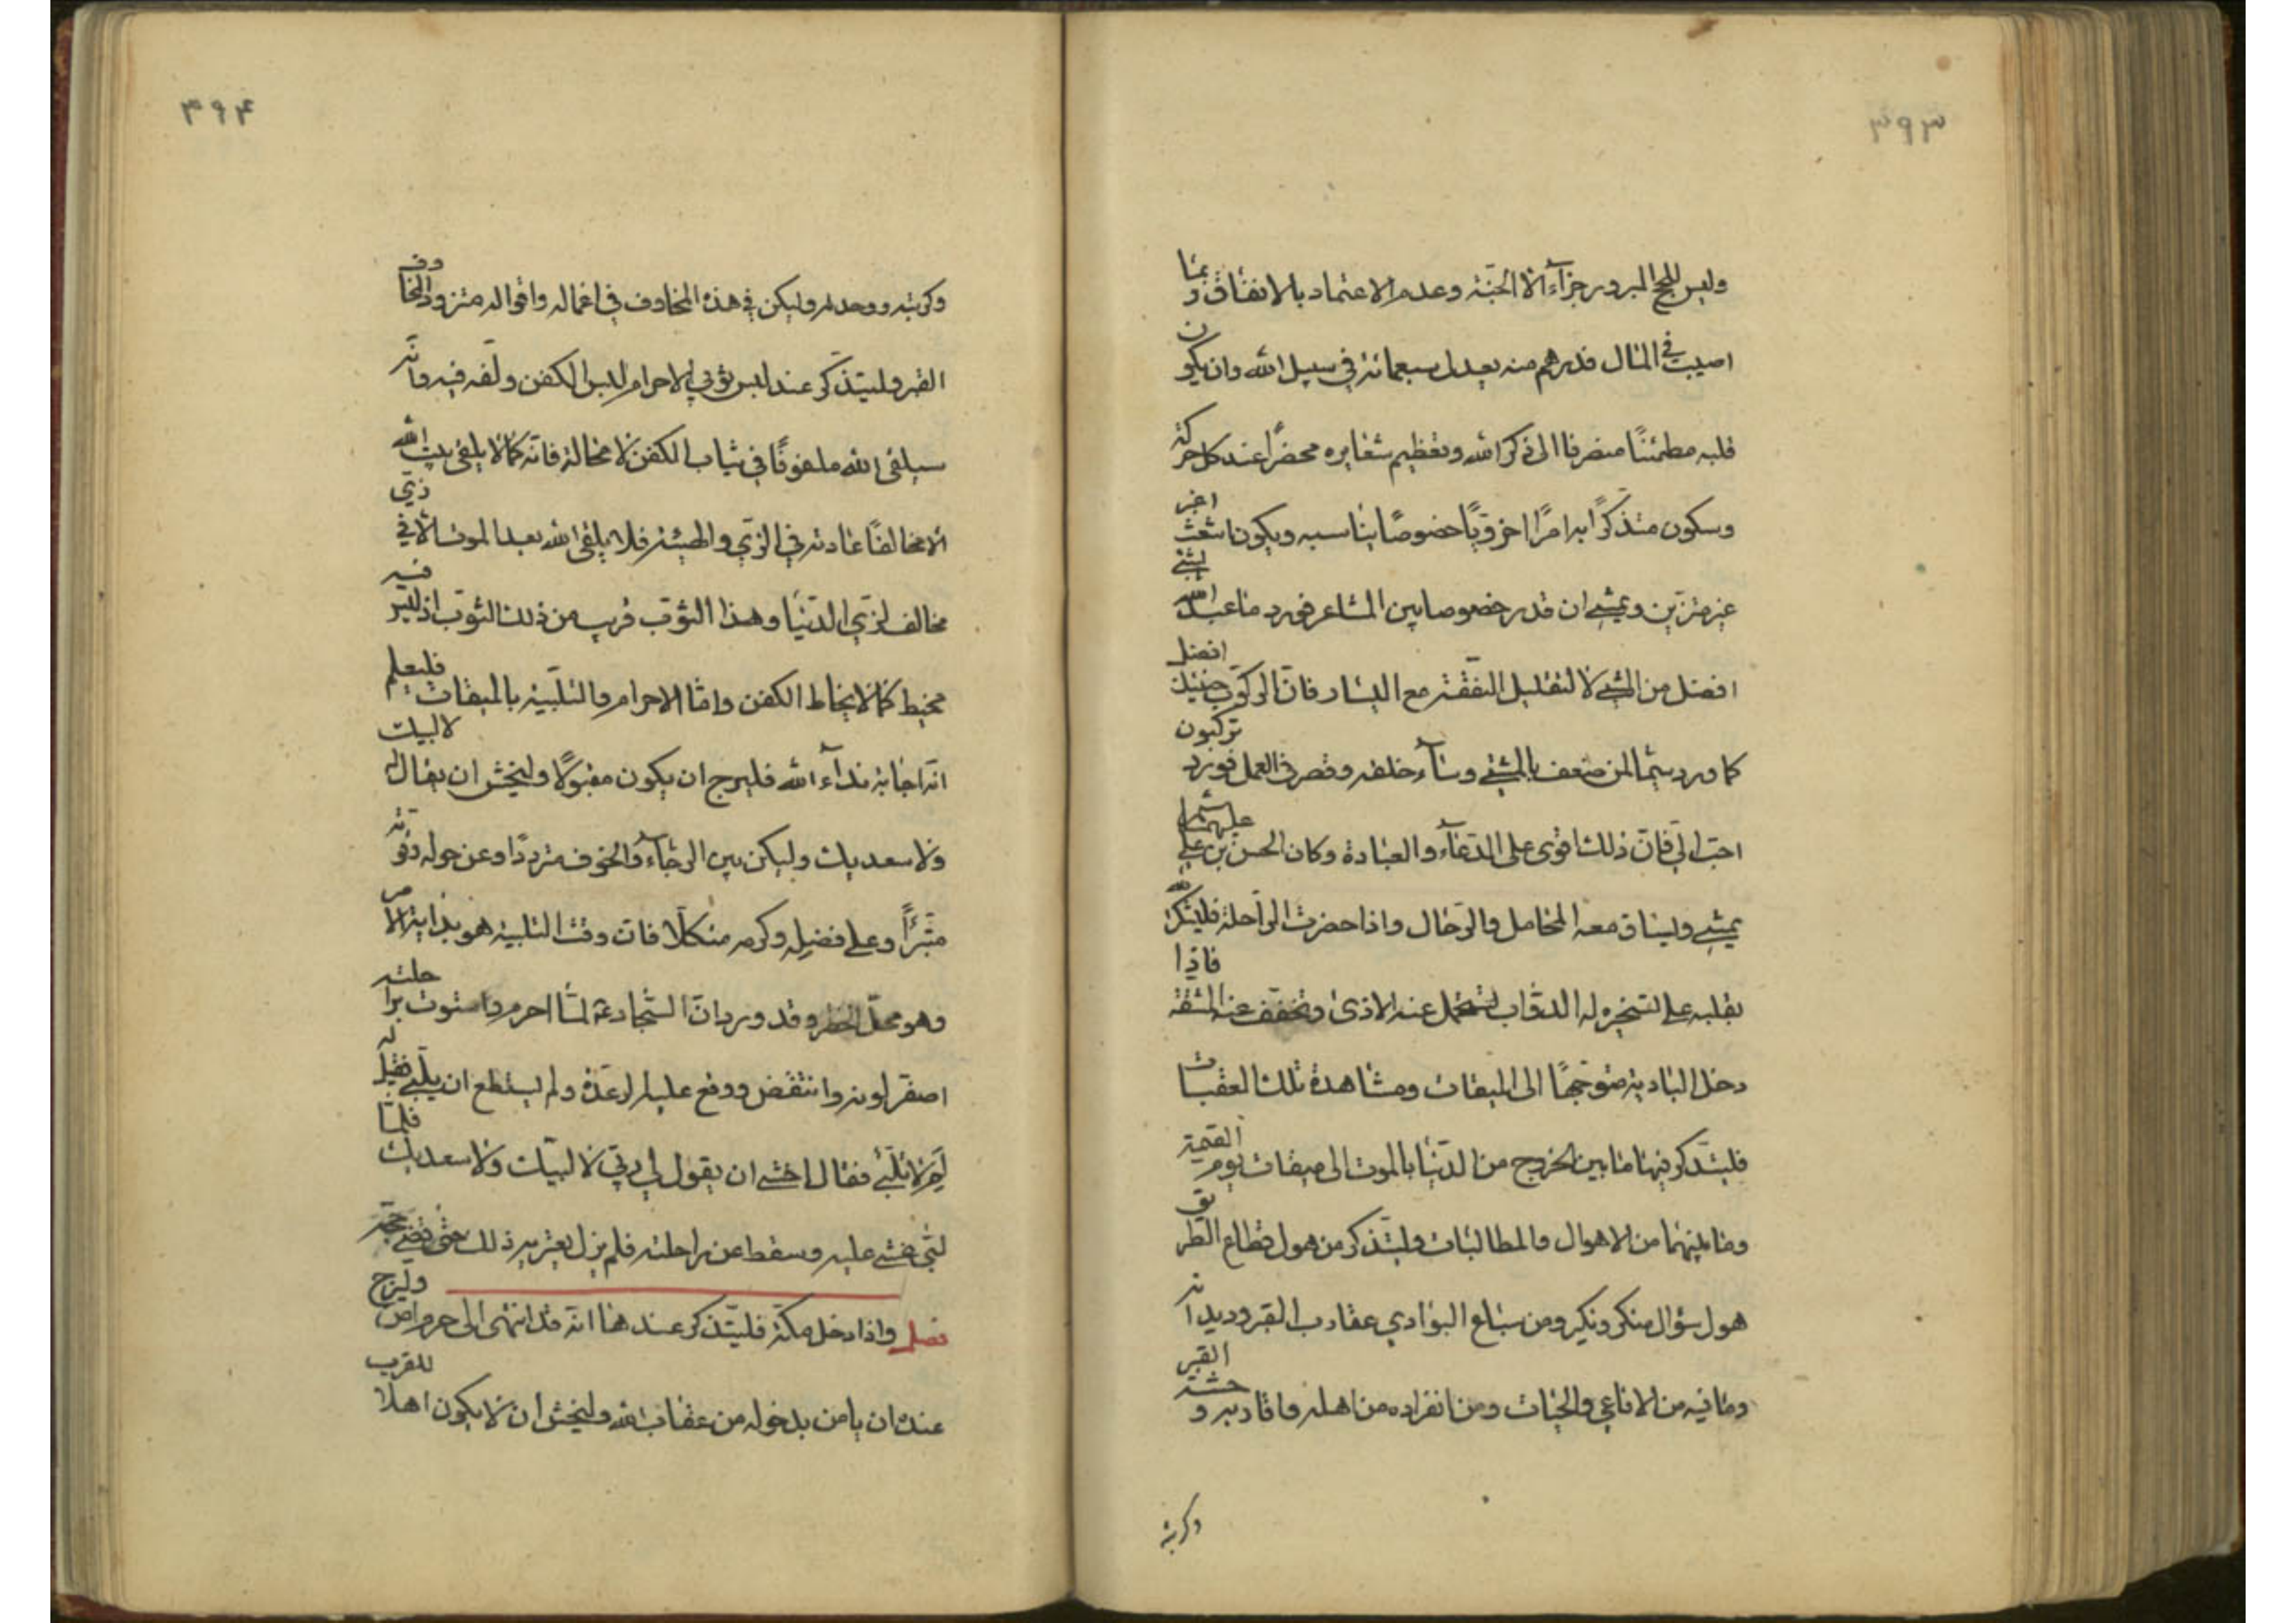 ۳۹۳
وليس للحج المبرور جزآء الا الجنة وعدم الاعتماد بالانفاق وبما
اصيب في المال فدرهم منه يعدل سبعمائة في سبيل الله وان يكون
قلبه مطمئنًا منصرفا الى ذكر الله وتعظيم شعايره محضرًا عند كل حركة
وسكون متذكرًا به امرًا اخرويًا خصوصًا يناسبه ويكون اشعث اغبر
غير متزين ويمشي ان قدر خصوصا بين المشاعر فورد ما عبد الله بشئ
افضل من المشي لا لتقليل النفقة مع اليسار فان الركوب حينئذ افضل
كما ورد سيما لمن ضعف بالمشي وسآء خلقه وقصر في العمل فورد تركبون
احب الي فان ذلك اقوى على الدعآء والعبادة وكان الحسن بن علي عليهما
يمشي ويساق معه المحامل والرحال واذا حضرت الراحلة فليشكر الله
بقلبه على تسخيره له الدواب لتتحمل عنه الاذى وتخفف عنه المشقة فاذا
دخل البادية متوجهًا الى الميقات ومشاهدة تلك العقبات
فليتذكر فيها ما بين الخروج من الدنيا بالموت الى ميقات يوم القيمة
وما بينهما من الاهوال والمطالبات وليتذكر من هول قطاع الطريق
هول سؤال منكر ونكير ومن سباع البوادي عقارب القبر وديدانه
وما فيه من الافاعي والحيات ومن انفراده من اهله واقاربه وحشة القبر
وكربته
۳۹۴
وكربته ووحدته وليكن في هذه المخاوف في اعماله واقواله متزودا لمخاوف
القبر وليتذكر عند لبس ثوبي الاحرام لبس الكفن ولفه فيه وانه
سيلقى الله ملفوفًا في ثياب الكفن لا محالة فانه كما لا يلقى بيت الله
الا مخالفًا عادته في الزي والهيئة فلا يلقى الله بعد الموت الا في زي
مخالف لزي الدنيا وهذا الثوب قريب من ذلك الثوب اذ ليس فيه
مخيط كما لا يخاط الكفن واما الاحرام والتلبية بالميقات فليعلم
انه اجابة ندآء الله فليرج ان يكون مقبولًا وليخش ان يقال له لا لبيك
ولا سعديك وليكن بين الرجآء والخوف مترددًا وعن حوله وقوته
متبرًأ وعلى فضله وكرمه متكلًا فان وقت التلبية هو بداية الامر
وهو محل الخطر وقد ورد ان السجاد ع لما احرم واستوت به راحلته
اصفر لونه وانتقض ووقع عليه الرعدة ولم يستطع ان يلبي فقيل له
لم لا تلبي فقال اخشى ان يقول لي ربي لا لبيك ولا سعديك فلما
لبى غشي عليه وسقط عن راحلته فلم يزل يعتريه ذلك حتى قضى حجه
فصل واذا دخل مكة فليتذكر عند ها انه قد انتهى الى حرم امن وليرج
عنده ان يامن بدخوله من عقاب الله وليخش ان لا يكون اهلا للقرب